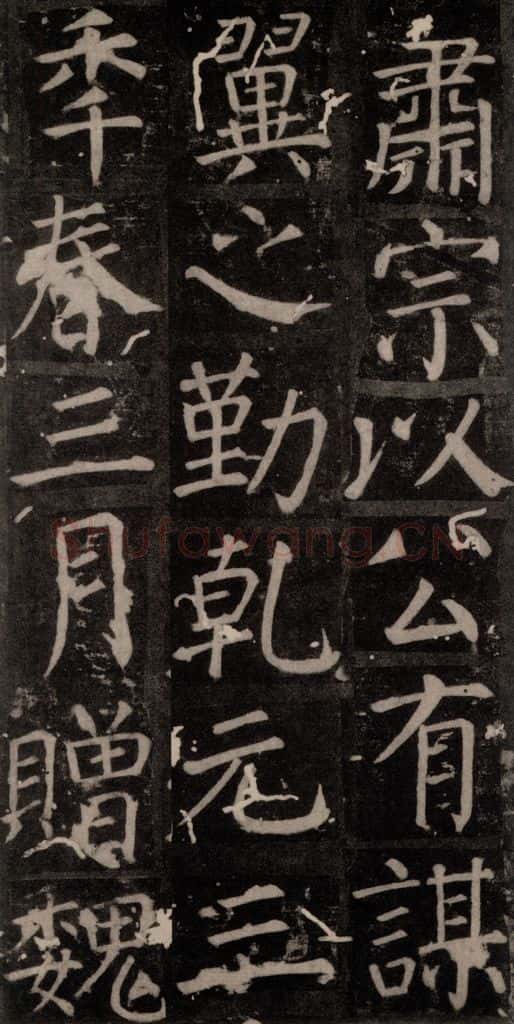 肅宗以公有謀
翼之勤乾元三
秊春三月贈魏
Shufawang.CN